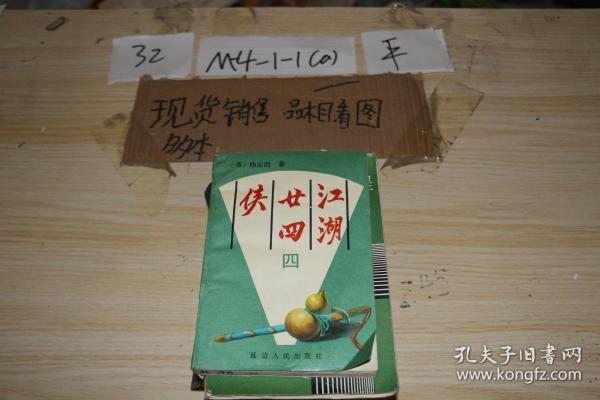 32
M4-1-1(a)
平
现货销售 品相看图
多本
(港)杨尘因 著
江湖
廿四
侠
四
延边人民出版社
孔夫子旧书网
www.kongfz.com